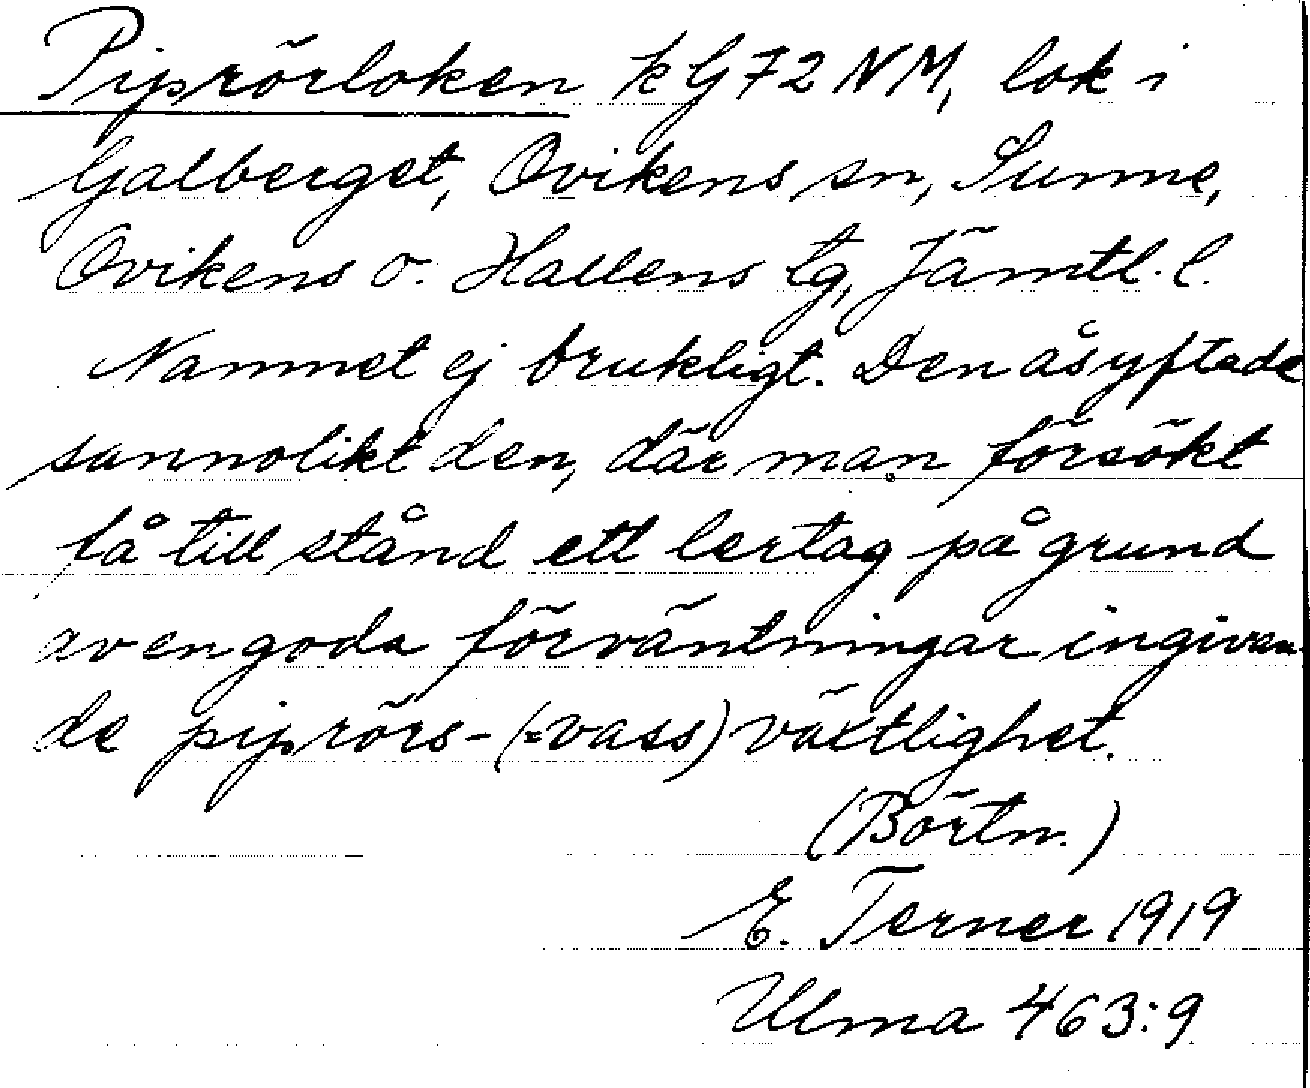 Piprörloken k G72NM, lok i
Galberget, Ovikens sn, Sunne,
Ovikens o. Hallens tg, Jämtl. l.
Namnet ej brukligt. Den åsyftade
sannolikt den, där man försökt
få till stånd ett lertag på grund
av en goda förväntningar ingivan-
de piprörs-(=vass) växtlighet.
(Börtn.)
E. Terner 1919
Ulma 463:9